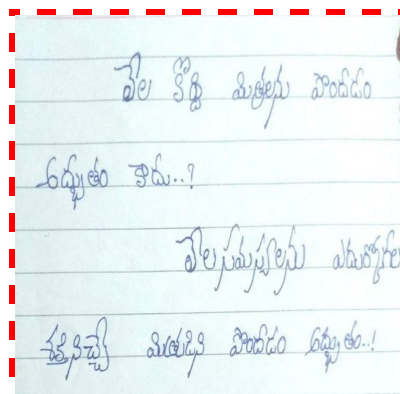 వేల కొద్ది మిత్రులను పొందడం
అద్భుతం కాదు..?
వేల సమస్యలను ఎదుర్కోగల
శక్తినిచ్చే మిత్రుడిని పొందడం అద్భుతం..!